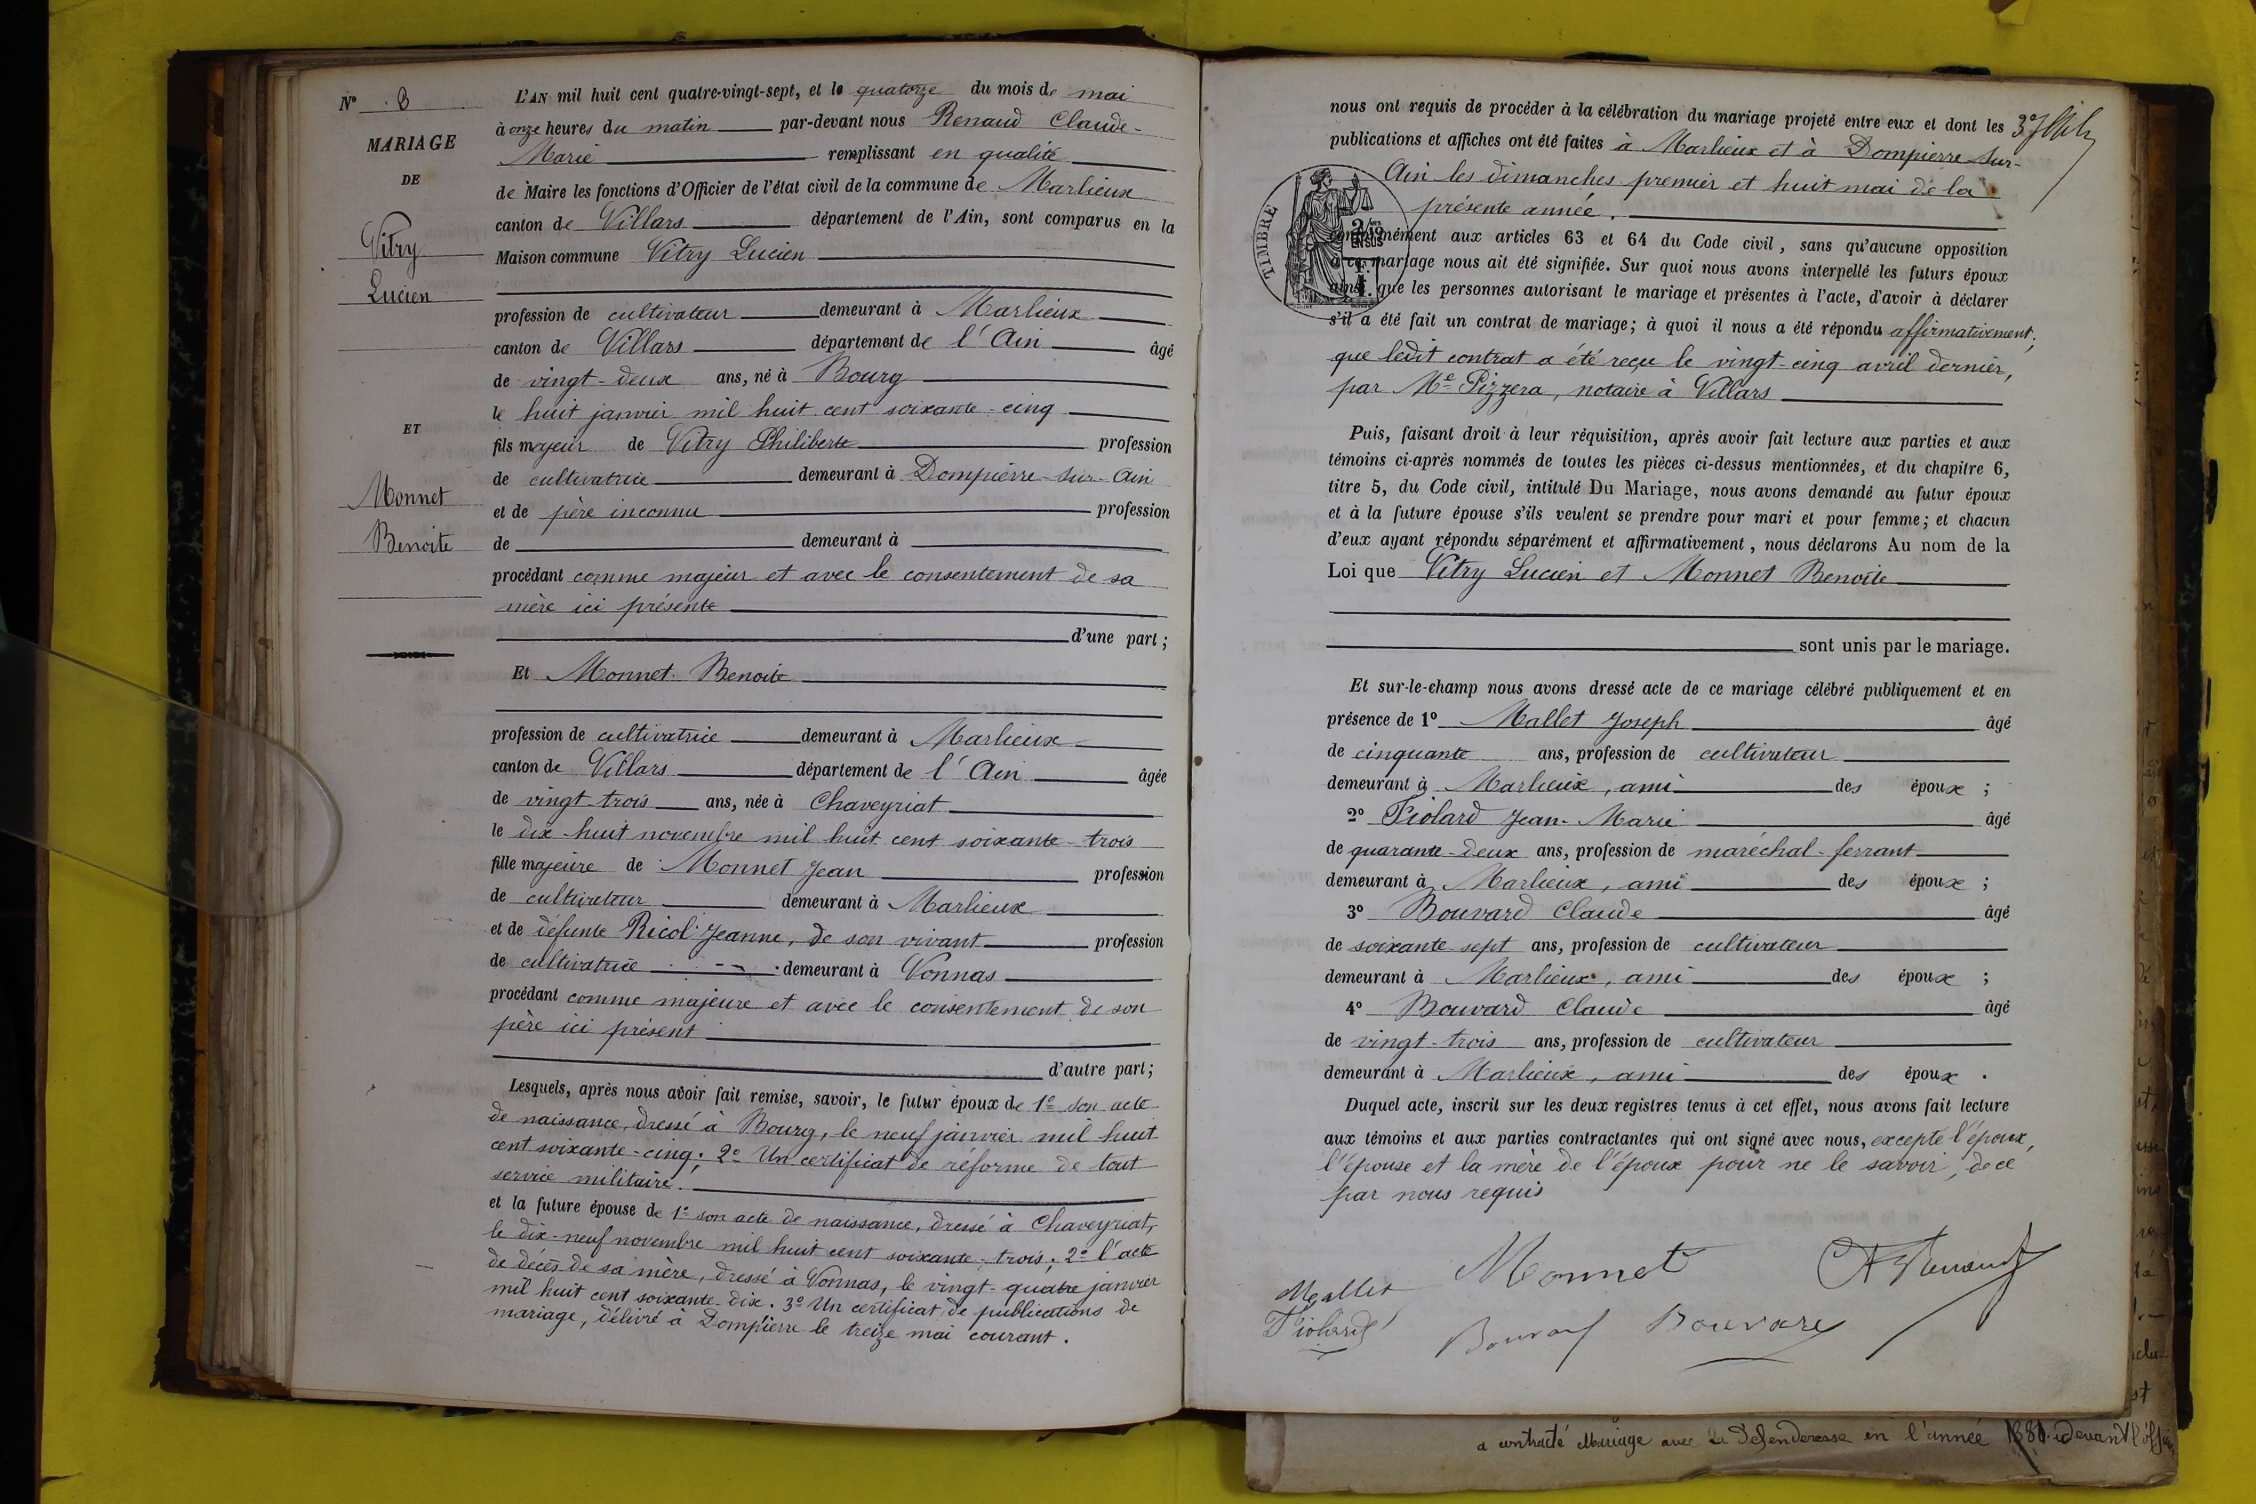 N° 3
MARIAGE
DE
Vitry
Lucien
ET
Monnet
Benoite
L'AN mil huit cent quatre-vingt-sept, et le quatorze du mois de mai
à onze heures du matin par-devant nous Renaud Claude-
Marie remplissant en qualité
de Maire les fonctions d'Officier de l'état civil de la commune de Marlieux
canton de Villars département de l'Ain, sont comparus en la
Maison commune Vitry Lucien
profession de cultivateur demeurant à Marlieux
canton de Villars département de l'Ain âgé
de vingt-deux ans, né à Bourg
le huit janvier mil huit cent soixante-cinq
fils majeur de Vitry Philiberte profession
de cultivatrice demeurant à Dompierre-sur-Ain
et de père inconnu profession
de demeurant à
procédant comme majeur et avec le consentement de sa
mère ici présente
d'une part;
Et Monnet Benoite
profession de cultivatrice demeurant à Marlieux
canton de Villars département de l'Ain âgée
de vingt-trois ans, née à Chaveyriat
le dix-huit novembre mil huit cent soixante-trois
fille majeure de Monnet Jean profession
de cultivateur demeurant à Marlieux
et de défunte Ricol Jeanne, de son vivant profession
de cultivatrice demeurant à Vonnas
procédant comme majeure et avec le consentement de son
père ici présent
d'autre part;
Lesquels, après nous avoir fait remise, savoir, le futur époux de 1° son acte
de naissance, dressé à Bourg, le neuf janvier mil huit
cent soixante-cinq; 2° Un certificat de réforme de tout
service militaire.
et la future épouse de 1° son acte de naissance, dressé à Chaveyriat,
le dix-neuf novembre mil huit cent soixante-trois; 2° l'acte
de décès de sa mère, dressé à Vonnas, le vingt-quatre janvier
mil huit cent soixante-dix. 3° Un certificat de publications de
mariage, délivré à Dompierre le treize mai courant.
nous ont requis de procéder à la célébration du mariage projeté entre eux et dont les
publications et affiches ont été faites à Marlieux et à Dompierre-sur-
Ain les dimanches premier et huit mai de la
présente année.
TIMBRE
2/10
EN SUS
conformément aux articles 63 et 64 du Code civil, sans qu'aucune opposition
à ce mariage nous ait été signifiée. Sur quoi nous avons interpellé les futurs époux
ainsi que les personnes autorisant le mariage et présentes à l'acte, d'avoir à déclarer
s'il a été fait un contrat de mariage; à quoi il nous a été répondu affirmativement;
que ledit contrat a été reçu le vingt-cinq avril dernier,
par Me Pizzera, notaire à Villars
Puis, faisant droit à leur réquisition, après avoir fait lecture aux parties et aux
témoins ci-après nommés de toutes les pièces ci-dessus mentionnées, et du chapitre 6,
titre 5, du Code civil, intitulé Du Mariage, nous avons demandé au futur époux
et à la future épouse s'ils veulent se prendre pour mari et pour femme; et chacun
d'eux ayant répondu séparément et affirmativement, nous déclarons Au nom de la
Loi que Vitry Lucien et Monnet Benoite
sont unis par le mariage.
Et sur-le-champ nous avons dressé acte de ce mariage célébré publiquement et en
présence de 1° Mallet Joseph âgé
de cinquante ans, profession de cultivateur
demeurant à Marlieux, ami des époux;
2° Fiolard Jean-Marie âgé
de quarante-deux ans, profession de maréchal-ferrant
demeurant à Marlieux, ami des époux;
3° Bouvard Claude âgé
de soixante sept ans, profession de cultivateur
demeurant à Marlieux, ami des époux;
4° Bouvard Claude âgé
de vingt-trois ans, profession de cultivateur
demeurant à Marlieux, ami des époux.
Duquel acte, inscrit sur les deux registres tenus à cet effet, nous avons fait lecture
aux témoins et aux parties contractantes qui ont signé avec nous, excepté l'époux,
l'épouse et la mère de l'époux pour ne le savoir, de ce
par nous requis
Monnet
Renaud
Mallet
Fiolard
Bouvard
Bouvard
a contracté Mariage avec la Défenderesse en l'année